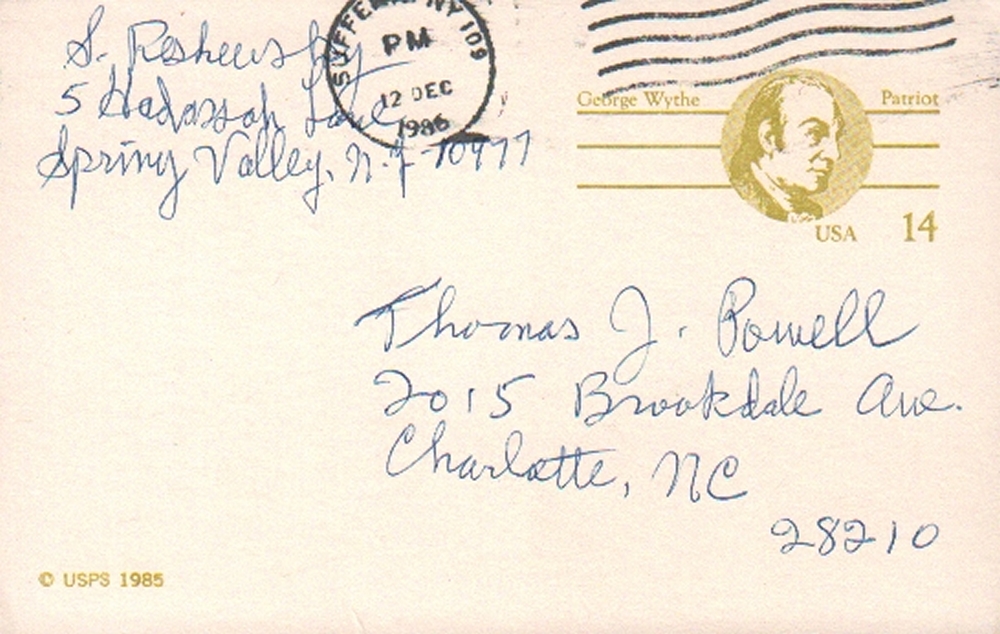 S. Reshevsky
5 Hadassah Lane
Spring Valley, N.Y 10977
SUFFERN, NY 109
PM
12 DEC
1986
George Wythe Patriot
USA 14
Thomas J. Powell
2015 Brookdale Ave.
Charlotte, NC
28210
© USPS 1985